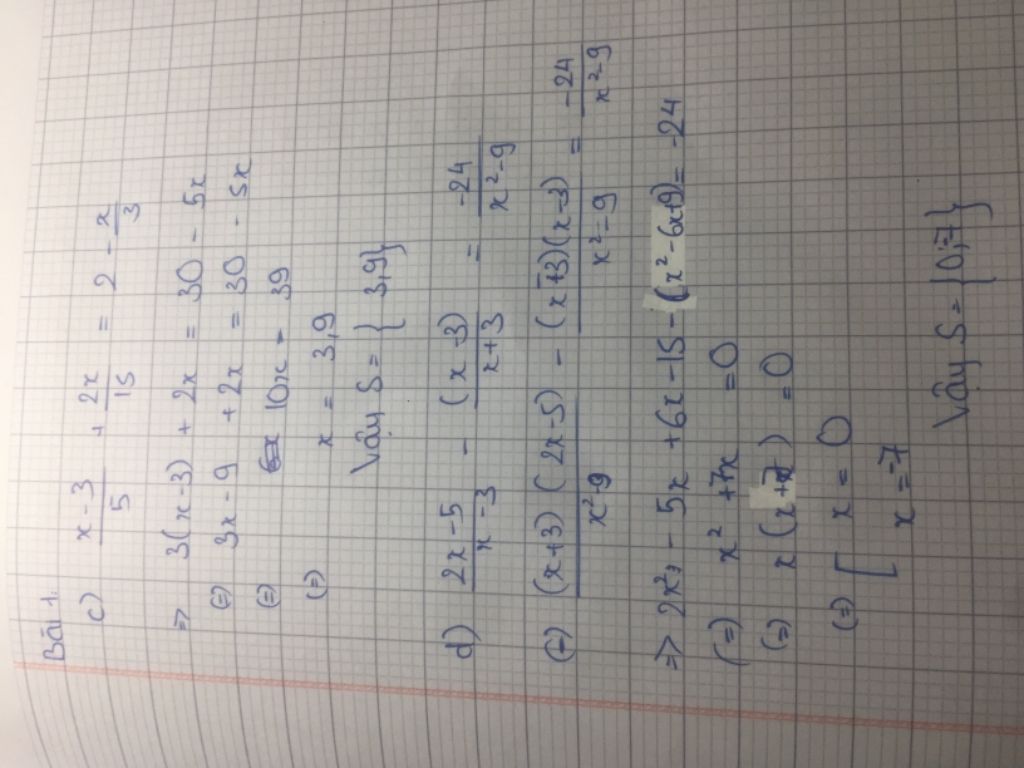 Bài 1:
c) \frac{x-3}{5} + \frac{2x}{15} = 2 - \frac{x}{3}
=> 3(x-3) + 2x = 30 - 5x
(=) 3x - 9 + 2x = 30 - 5x
(=) 10x = 39
(=) x = 3,9
Vậy S = { 3,9}
d) \frac{2x-5}{x-3} - \frac{(x-3)}{x+3} = \frac{-24}{x²-9}
(=) \frac{(x+3)(2x-5)}{x²-9} - \frac{(x+3)(x-3)}{x²-9} = \frac{-24}{x²-9}
=> 2x² - 5x + 6x - 15 - (x² - 6x+9) = -24
(=) x² + 7x = 0
(=) x (x+7) = 0
(=) [ x = 0
x = -7
Vậy S = {0;-7}